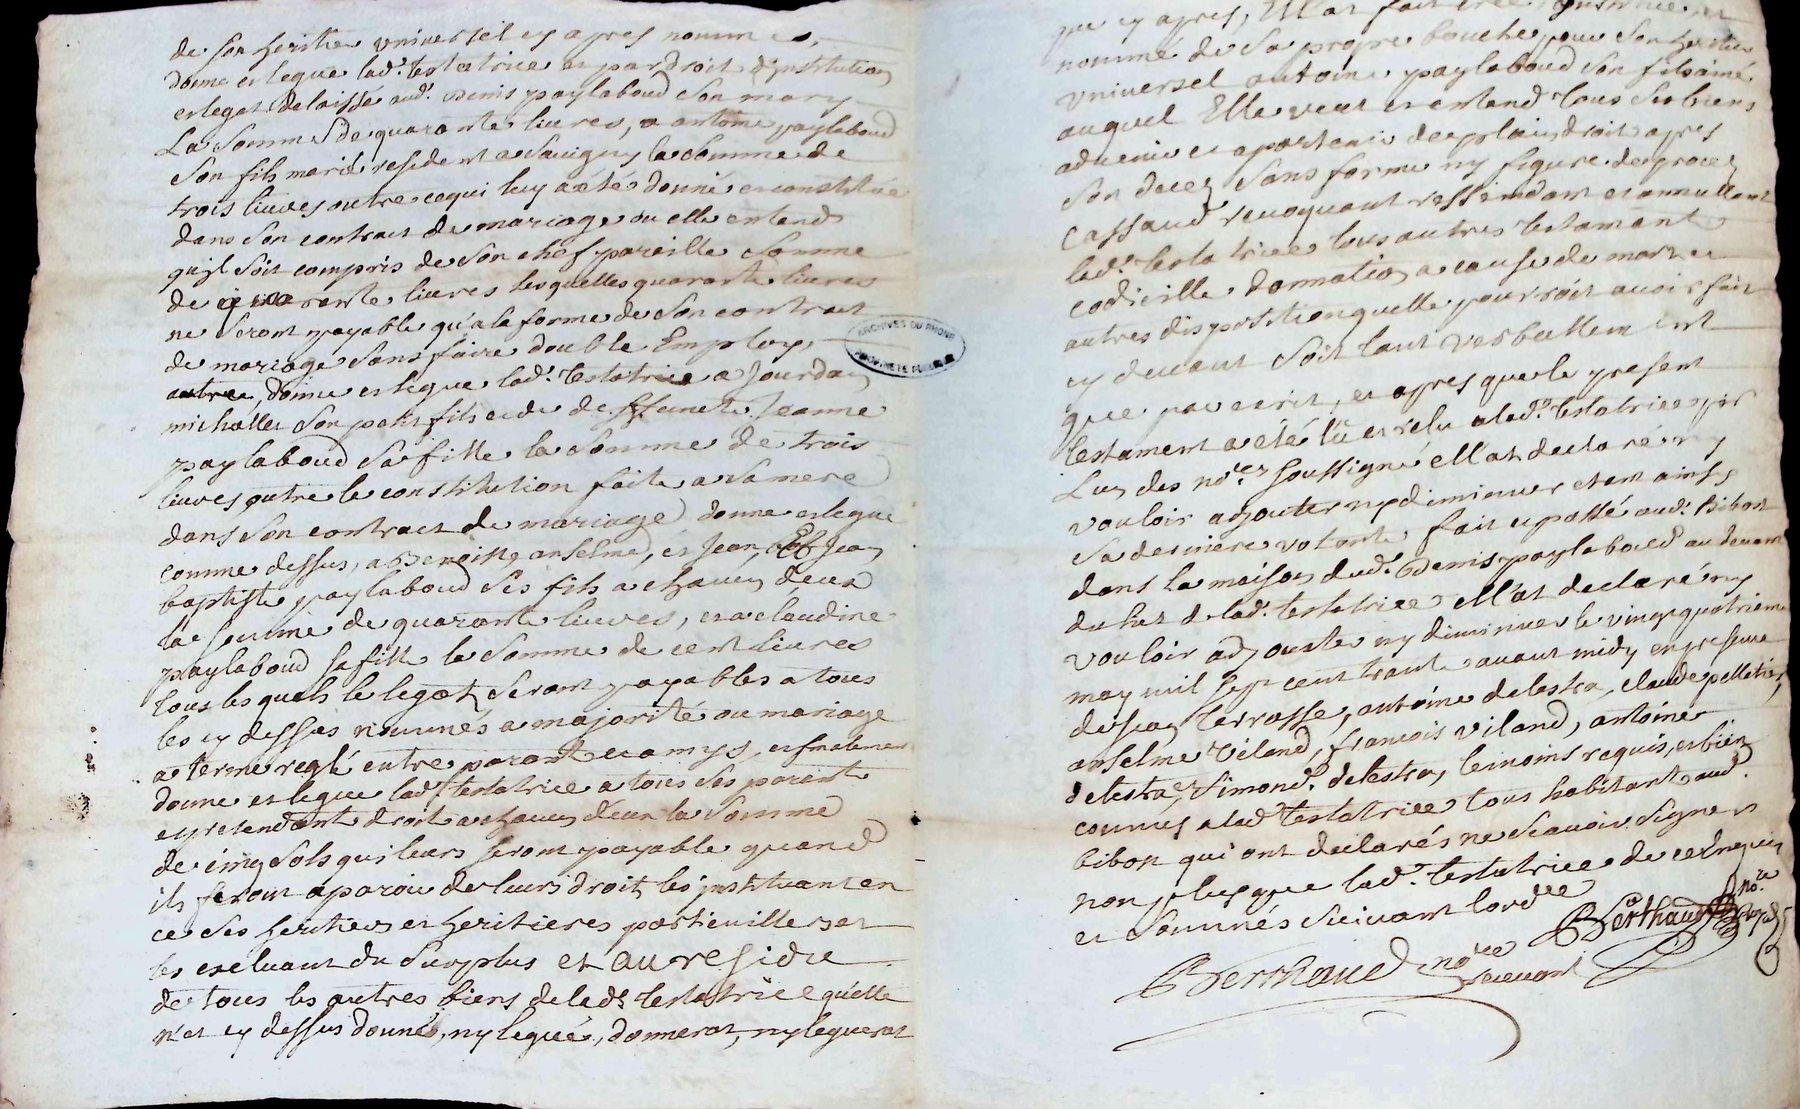 de son heritier universel cy apres nommé,
donne et legue lad.e testatrice et par droit d'institution
et legat delaissé aud.t Denis paylaboud son mary
La somme de quarante livres, a antoine paylaboud
son fils marié resident a Savigny la somme de
trois livres outre cequi luy a été donné et constitué
dans son contract de mariage ou elle entend
qu'jl soit compris de son chef pareille somme
de quarante livres lesquelles quarante livres
ne seront payable qu'a la forme de son contract
de mariage sans faire double Employ,
outre, donne et legue lad.e testatrice a Jourdan
michallet son petit fils et de deffunte Jeanne
paylaboud sa fille la somme de trois
livres outre le constitution faite a sa mere
dans son contract de mariage donne et legue
comme dessus, a Benoist, anselme, et Jean, Et Jean
baptiste paylaboud ses fils a chacun d'eux
la somme de quarante livres, et a claudine
paylaboud sa fille la somme de cent livres
tous lesquels legat seront payables a tous
les cy dessus nommés a majorité ou mariage
a terme reglé entre parant et amys, et finalement
donne et legue lad.e testatrice a tous ses parent
et pretendant droit a chacun d'eux la somme
de cinq sols qui leurs seront payable quand
ils feront aparoir de leurs droit les jnstituant en
ce ses heritiers et heritieres particuilleres et
les excluant du surplus et au residu
de tous les autres biens de lad.e testatrice qu'elle
n'at cy dessus donné, ny legué, donnerat, ny leguerat
que cy apres, Ell'at fait creé, jnstitué, et
nommé de sa propre bouche pour son heritier
universel antoine paylaboud son fils ainé
auquel Elle veut et entend tous ses biens
advenir et apartenir de plain droit apres
son decez sans forme ny figure de procez
cassand revoquant ressindant et annullant
lad.e testatrice tous autres testament
codicille donnation a cause de mort et
autres disposition quelle pourroit avoir fait
cy devant soit tant verballement
que par ecrit, et apres que le present
testament a été lû et relu a lad.e testatrice par
L'un des no.res soussigné ell'at declaré ny
vouloir adjouter ny diminuer etant ainsy
sa derniere volonté fait et passé aud.t Bibost
dans la maison dud.t Denis paylaboud au devant
du lict de lad.e testatrice ell'at declaré ny
vouloir adjouster ny diminuer le vingt quatrieme
may mil sept cent trante avant midy en presence
de jean terrasse, antoine delestra, claude pelletier,
anselme viland, françois viland, antoine
delestra, Simond delestra, temoins requis, et bien
connus a lad.e testatrice tous habitant aud.t
bibost qui ont declarés ne scavoir signer
non plus que lad.e testatrice de ce Enquis
et sommés suivant lord.ce
Berthaud no.re
Berthaud no.re recevant
ARCHIVES DU RHONE
PROPRIETE PUBLIQUE